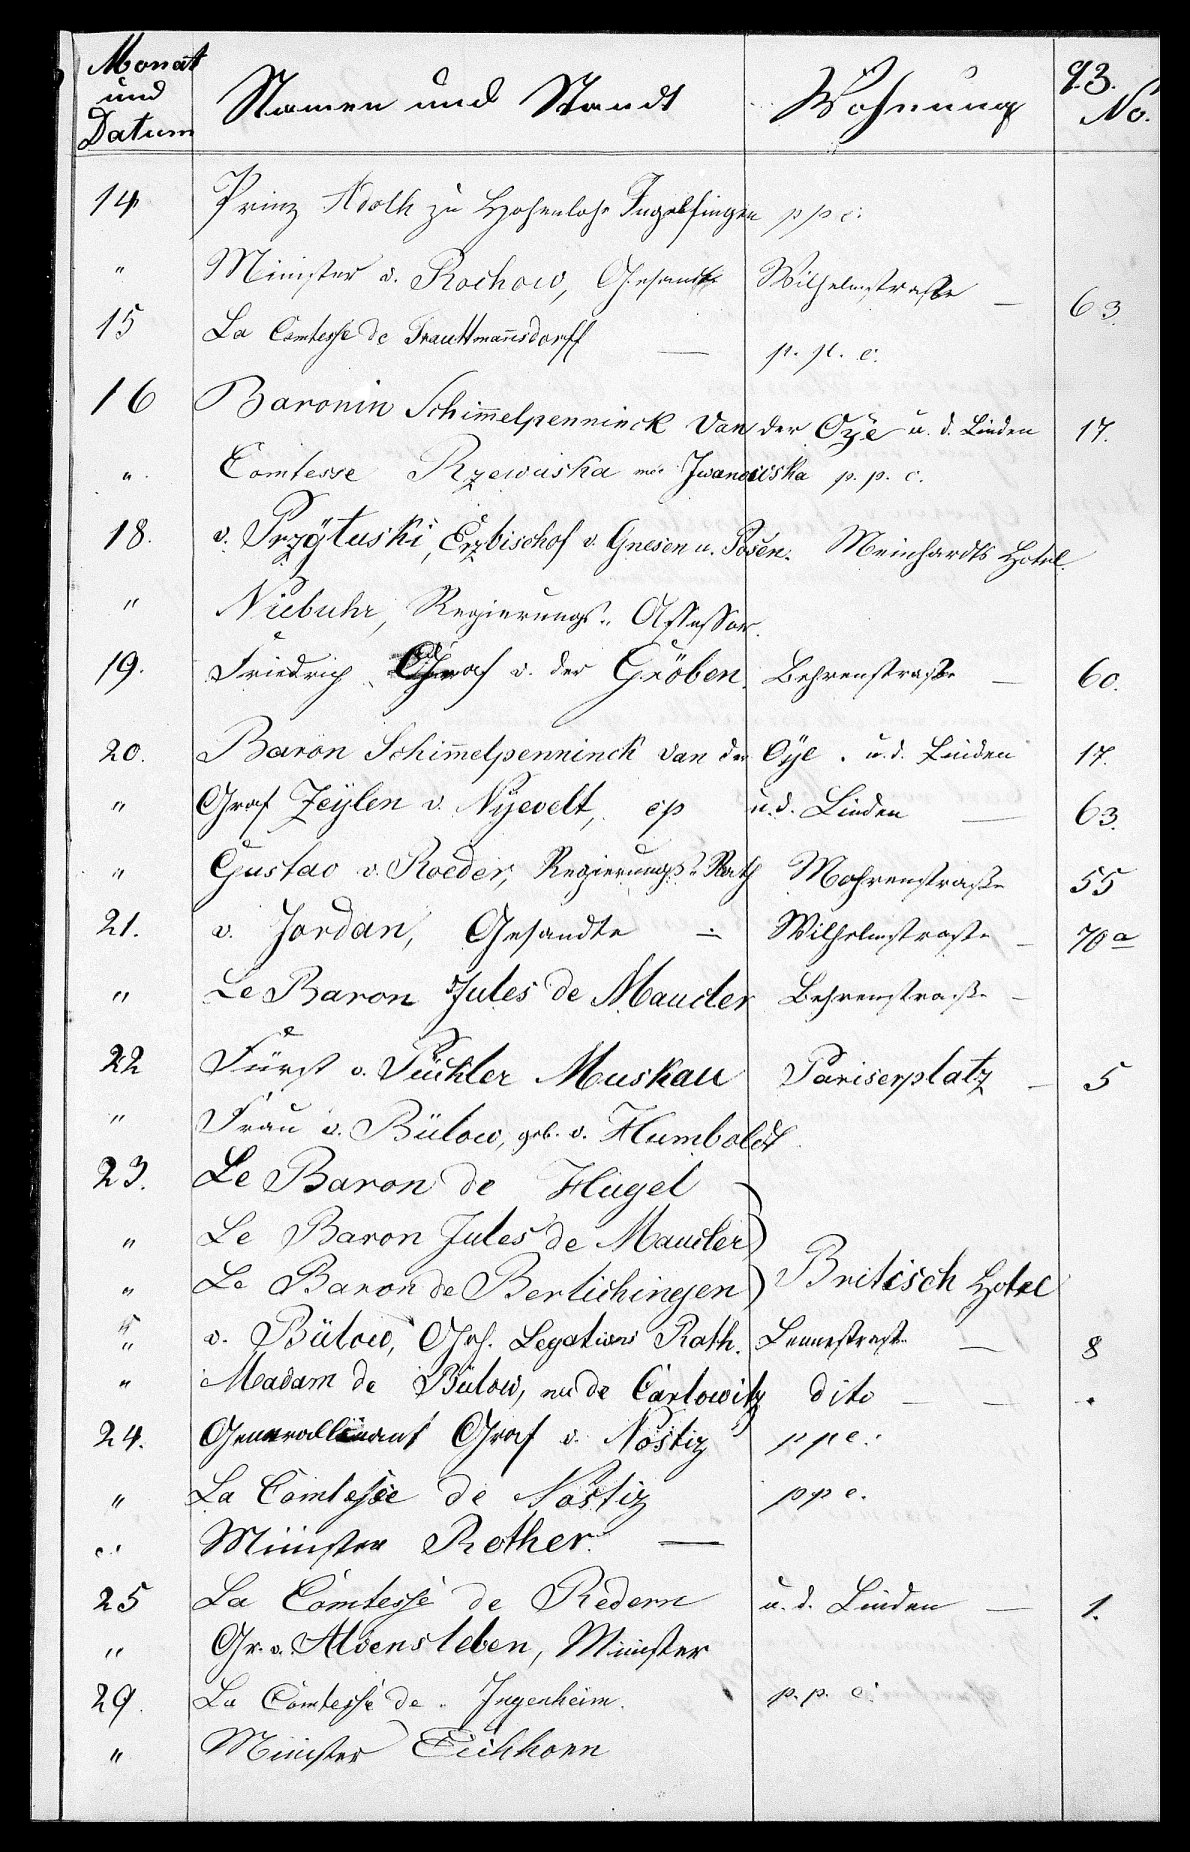 93.
Monat und Datum Namen und Standt Wohnung No.
14 Prinz Adolh zu Hohenlohe Ingelfingen p p c.
" Minister v. Rochow, Gesandte Wilhelmstraße — 63.
15 La Comtesse de Trauttmannsdorff — p. p. c.
16 Baronin Schimmelpenninck van der Oÿe u. d. Linden 17.
" Comtesse Rzewuska née Iwanowska p. p. c.
18. v. Przÿtuski, Erzbischof v. Gnesen u. Posen. Meinhardts Hotel.
" Niebuhr, Regierungs-Assessor.
19. Friedrich Graf v. der Gröben. Behrenstraße — 60.
20. Baron Schimmelpenninck van der Oÿe . u. d. Linden 17.
" Graf Zeÿlen v. Nÿevelt, u. d. Linden — 63.
" Gustav v. Roeder, Regierungs-Rath Mohrenstraße 55
21. v. Jordan, Gesandte — Wilhelmstraße — 70a
" Le Baron Jules de Maucler Behrenstraße —
22 Fürst v. Pückler Muskau Pariserplatz — 5
" Frau v. Bülow, geb. v. Humboldt.
23. Le Baron de Hügel
" Le Baron Jules de Maucler
" Le Baron de Berlichingen Britisch Hotel
" v. Bülow, Gh. Legations Rath. Lennestraße — 8
" Madam de Bülow, née de Carlowitz dito — — .
24. Graf v. Nostiz p p c.
" La Comtesse de Nostiz p p c.
" Minister Rother. —
25 La Comtesse de Redern u. d. Linden — 1.
" Gr. v. Alvensleben, Minister
29. La Comtesse de Ingenheim. p. p. c.
" Minister Eichhorn